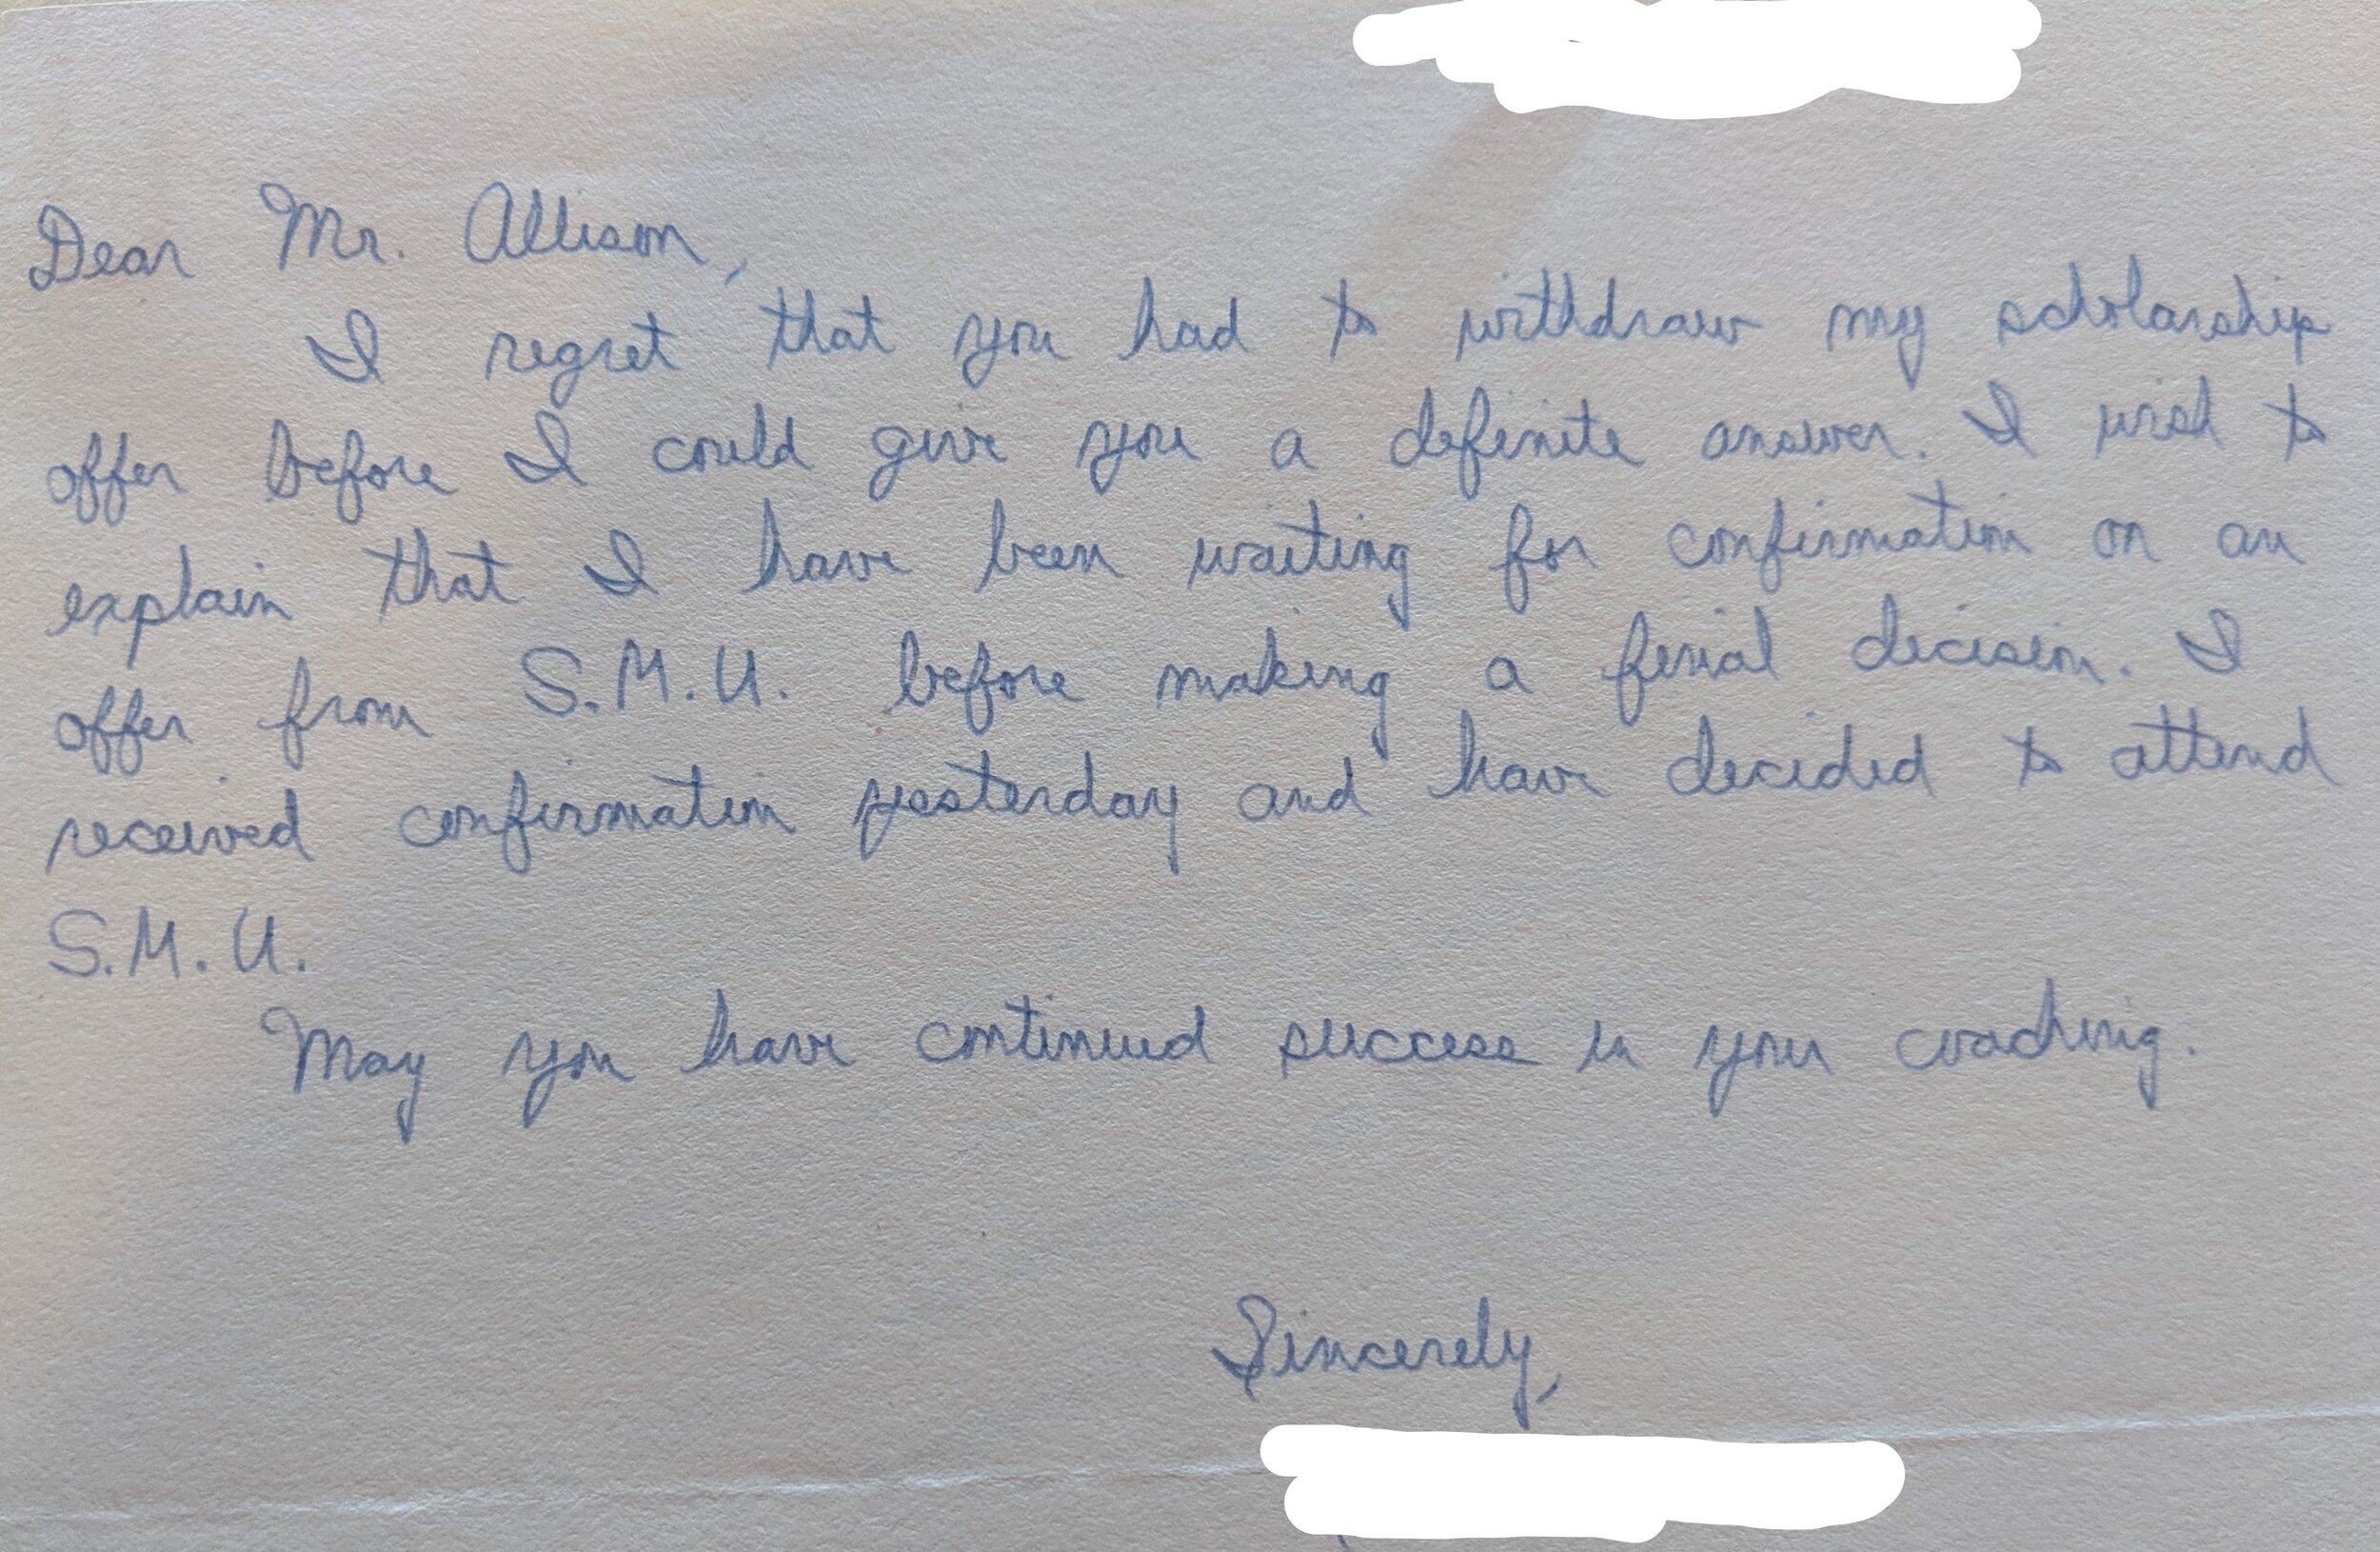 Dear Mr. Allison,
I regret that you had to withdraw my scholarship
offer before I could give you a definite answer. I wish to
explain that I have been waiting for confirmation on an
offer from S.M.U. before making a final decision. I
received confirmation yesterday and have decided to attend
S.M.U.
May you have continued success in your coaching.
Sincerely,